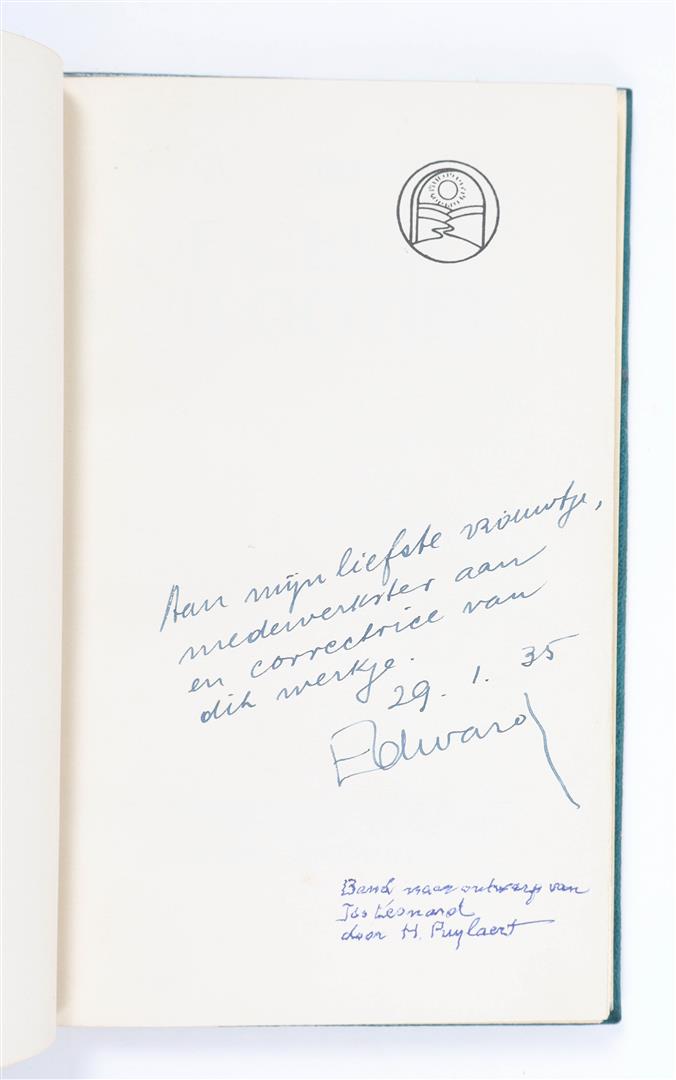 Aan mijn liefste vrouwtje,
medewerkster aan
en correctrice van
dit werkje.
29. 1. 35
Edward
Band naar ontwerp van
Jos Léonard
door H. Puylaert